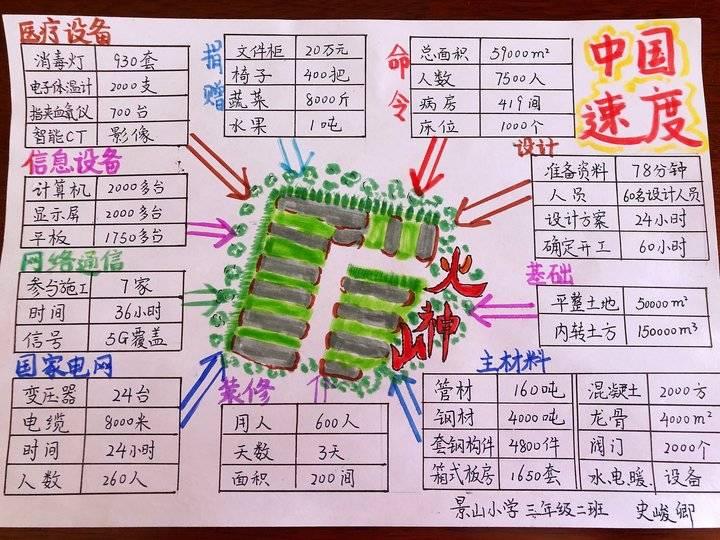 中国
速度
医疗设备
消毒灯 930套
电子体温计 2000支
指夹血氧仪 700台
智能CT 影像
捐赠
文件柜 20万元
椅子 400把
蔬菜 8000斤
水果 10吨
命令
总面积 59000m²
人数 7500人
病房 419间
床位 1000个
信息设备
计算机 2000多台
显示屏 2000多台
平板 1750多台
设计
准备资料 78分钟
人员 60名设计人员
设计方案 24小时
确定开工 60小时
网络通信
参与施工 7家
时间 36小时
信号 5G覆盖
火神山
基础
平整土地 50000m²
内转土方 150000m³
国家电网
变压器 24台
电缆 8000米
时间 24小时
人数 260人
装修
用人 600人
天数 3天
面积 200间
主材料
管材 160吨 混凝土 2000方
钢材 4000吨 龙骨 4000m²
套钢构件 4800件 阀门 2000个
箱式板房 1650套 水、电、暖、设备
景山小学三年级二班 史峻卿